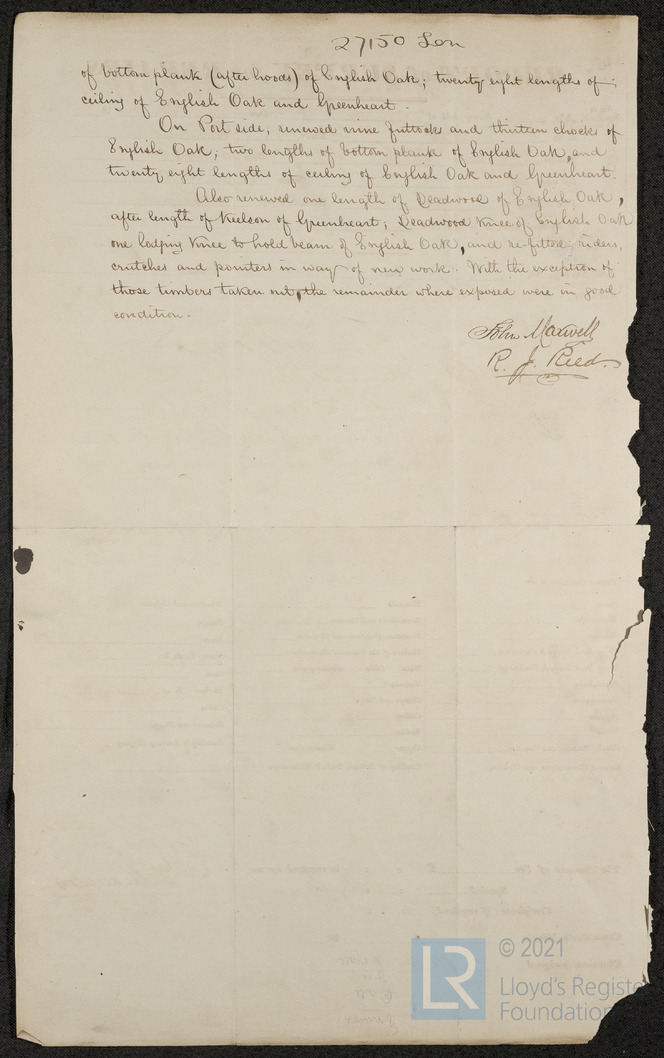 27150 Lon
of bottom plank (after hoods) of English Oak; twenty eight lengths of
ceiling of English Oak and Greenheart.
On Port side, renewed nine futtocks and thirteen chocks of
English Oak; two lengths of bottom plank of English Oak, and
twenty eight lengths of ceiling of English Oak and Greenheart.
Also renewed one length of Deadwood of English Oak,
after length of Keelson of Greenheart; Deadwood Knee of English Oak
one lodging Knee to hold beam of English Oak, and re-fitted riders,
crutches and pointers in way of new work. With the exception of
those timbers taken out, the remainder where exposed were in good
condition.
John Maxwell
R. J. Reed.
LR
© 2021
Lloyd's Register
Foundation